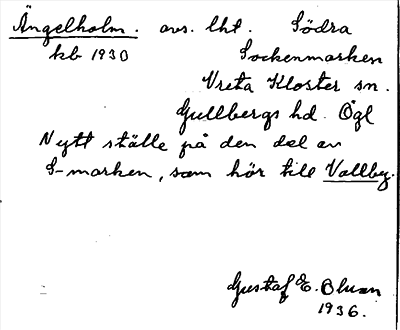 Ängelholm. avs. lht. Södra
kb 1930 Sockenmarken
Vreta Kloster sn.
Gullbergs hd. Ögl
Nytt ställe på den del av
S-marken, som hör till Vallby.
Gustaf E. Bluan
1936.